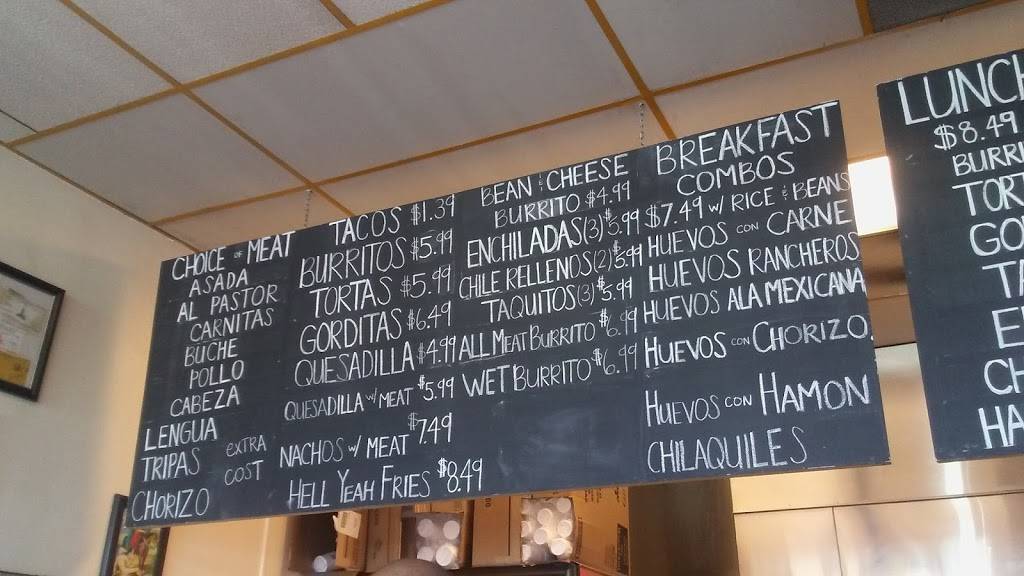 CHOICE OF MEAT
ASADA
AL PASTOR
CARNITAS
BUCHE
POLLO
CABEZA
LENGUA
TRIPAS
CHORIZO
EXTRA
COST
TACOS $1.39
BURRITOS $5.99
TORTAS $5.99
GORDITAS $6.49
QUESADILLA $4.99
QUESADILLA W/ MEAT $5.99
NACHOS W/ MEAT $7.49
HELL YEAH FRIES $8.49
BEAN & CHEESE
BURRITO $4.99
ENCHILADAS(3) $5.99
CHILE RELLENOS(2) $5.99
TAQUITOS(3) $5.99
ALL MEAT BURRITO $6.99
WET BURRITO $6.99
BREAKFAST
COMBOS
$7.49 W/ RICE & BEANS
HUEVOS CON CARNE
HUEVOS RANCHEROS
HUEVOS ALA MEXICANA
HUEVOS CON CHORIZO
HUEVOS CON HAMON
CHILAQUILES
LUNCH
$8.49
BURRI
TOR
GO
TA
E
CH
HA